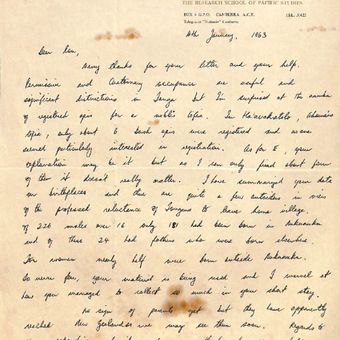 THE RESEARCH SCHOOL OF PACIFIC STUDIES
BOX 4 G.P.O. CANBERRA A.C.T.
Telegrams "Natuniv" Canberra
4th January, 1963
Dear
Many thanks for your letter and your help.
Permissive and Customary occupance are useful and
significant distinctions in Tonga but I'm surprised at the number
of registered apis for a noble's tofia. In
only about 6 bush apis were registered and no one
seemed particularly interested in registration. As for E, your
explanation may be it but as I can only find about four
of them it doesn't really matter. I have summarized your data
on birthplaces and there are quite a few outsiders in view
of the professed reluctance of Tongans to leave home village.
of 226 males over 16 only 181 had been born in Nukunuku
and of these 24 had fathers who were born elsewhere.
For women nearly half were born outside Nukunuku.
So were far, your material is being used and I marvel at
how you managed to collect so much in your short stay.
No sign of parents yet but they have apparently
reached New Zealand so we may see them soon. Regards to